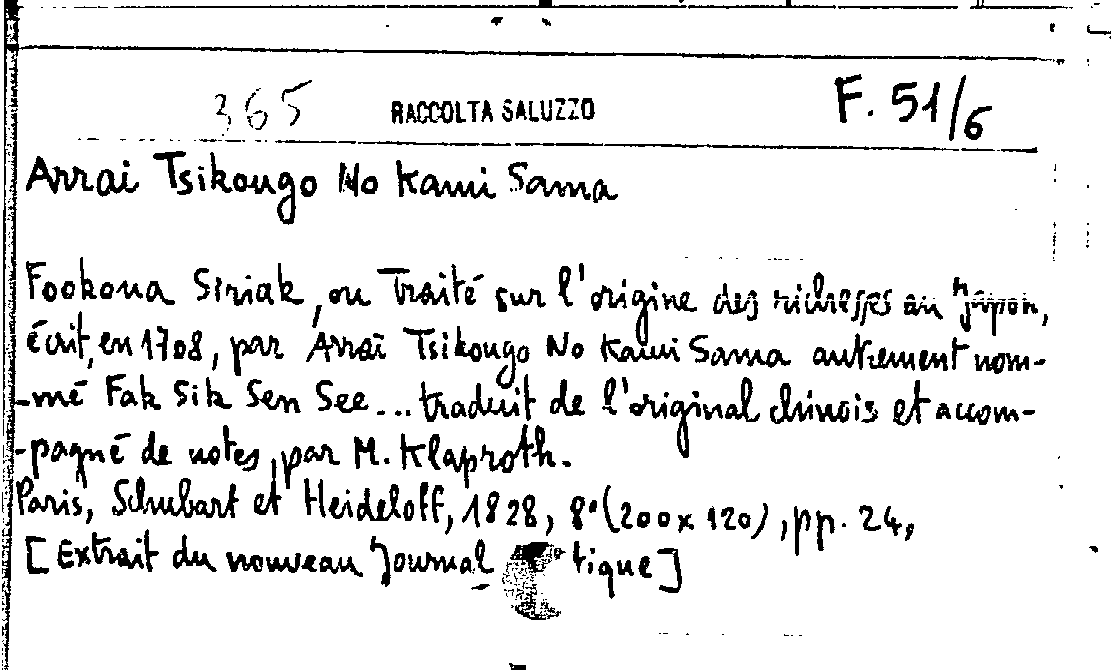 365 RACCOLTA SALUZZO F. 51/6
Arrai Tsikougo No Kami Sama
Fookoua Siriak, ou Traité sur l'origine des richesses au Japon,
écrit, en 1708, par Arraï Tsikougo No Kami Sama autrement nom-
-mé Fak Sik Sen See... traduit de l'original chinois et accom-
-pagné de notes, par M. Klaproth.
Paris, Schubart et Heideloff, 1828, 8°(200x120), pp. 24,
[Extrait du nouveau Journal tique]